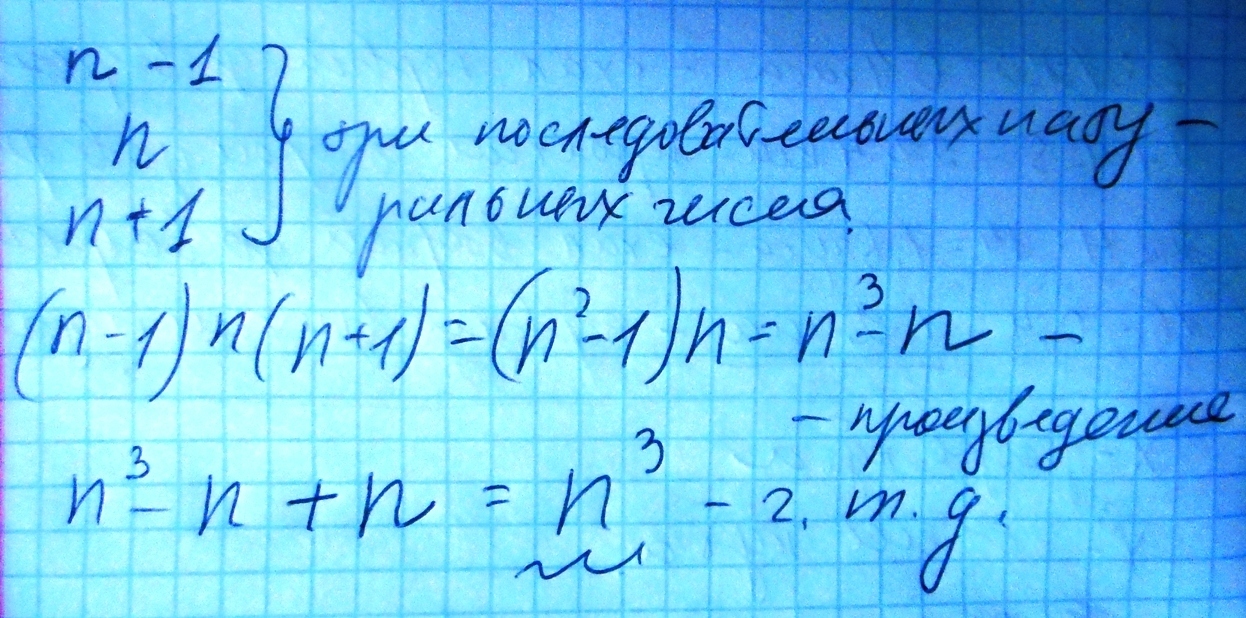 n - 1
n } три последовательных нату -
n + 1 ральных числа.
(n - 1) n (n + 1) = (n² - 1) n = n³ - n -
- произведение
n³ - n + n = n³ - ч. т. д.